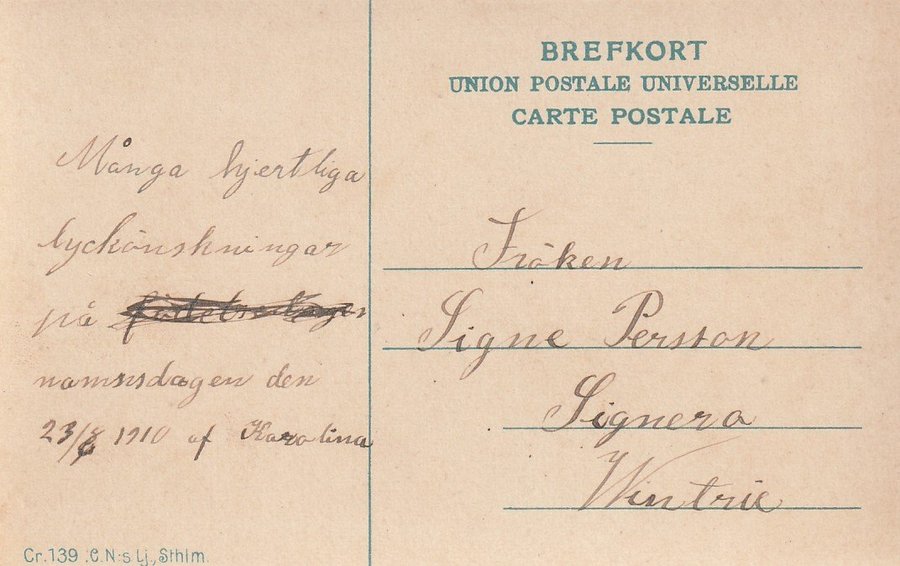 BREFKORT
UNION POSTALE UNIVERSELLE
CARTE POSTALE
Många hjertliga
lyckönskningar
på födelsedagen
namnsdagen den
23/8 1910 af Karolina
Fröken
Signe Persson
Signero
Wintrie
Cr. 139 .C.N:s Lj., Sthlm.